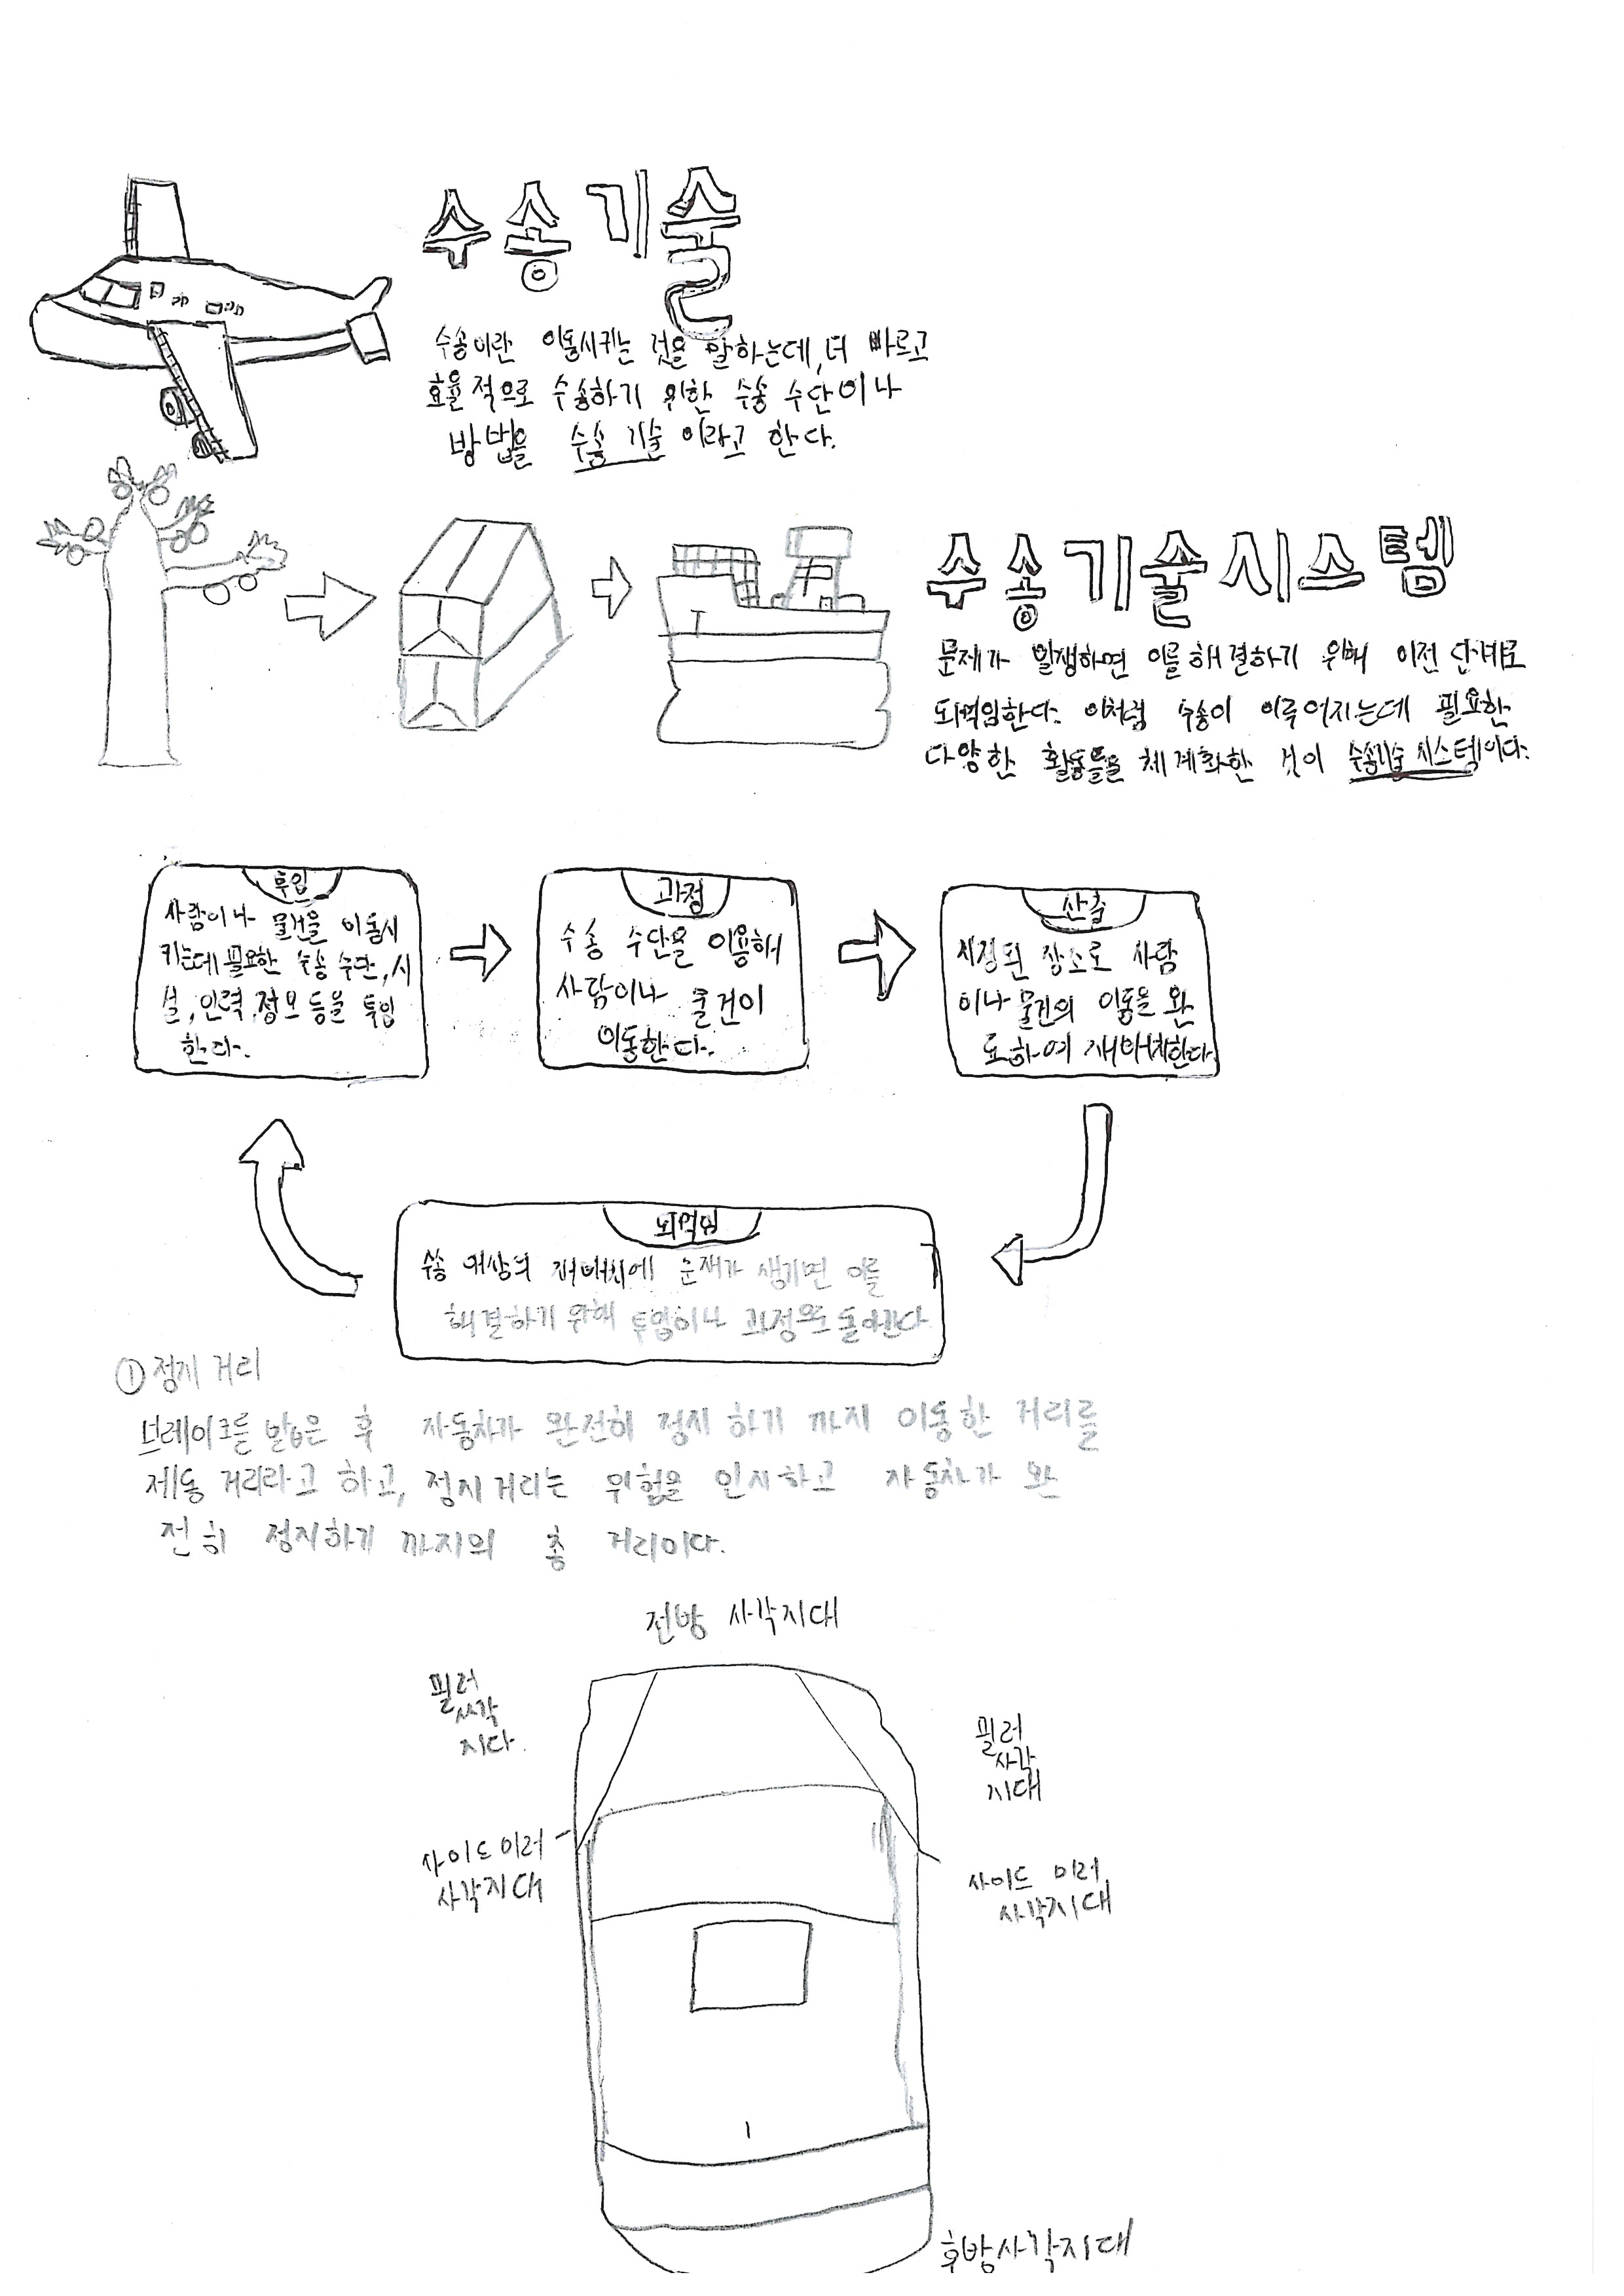 수송기술
수송이란 이동시키는 것을 말하는데, 더 빠르고
효율적으로 수송하기 위한 수송 수단이나
방법을 수송 기술 이라고 한다.
수송기술시스템
문제가 발생하면 이를 해결하기 위해 이전 단계로
되먹임한다. 이처럼 수송이 이루어지는데 필요한
다양한 활동들을 체계화한 것이 수송기술 시스템이다.
투입
사람이나 물건을 이동시
키는데 필요한 수송 수단, 시
설, 인력, 정보 등을 투입
한다.
과정
수송 수단을 이용해
사람이나 물건이
이동한다.
산출
지정된 장소로 사람
이나 물건의 이동을 완
료하여 재배치한다
되먹임
수송 대상의 재배치에 문제가 생기면 이를
해결하기 위해 투입이나 과정으로 돌아간다
① 정지 거리
브레이크를 밟은 후 자동차가 완전히 정지 하기 까지 이동한 거리를
제동 거리라고 하고, 정지거리는 위험을 인지하고 자동차가 완
전히 정지하기 까지의 총 거리이다.
전방 사각지대
필러
사각
지다
필러
사각
지대
사이드 미러
사각지대
사이드 미러
사각지대
후방사각지대